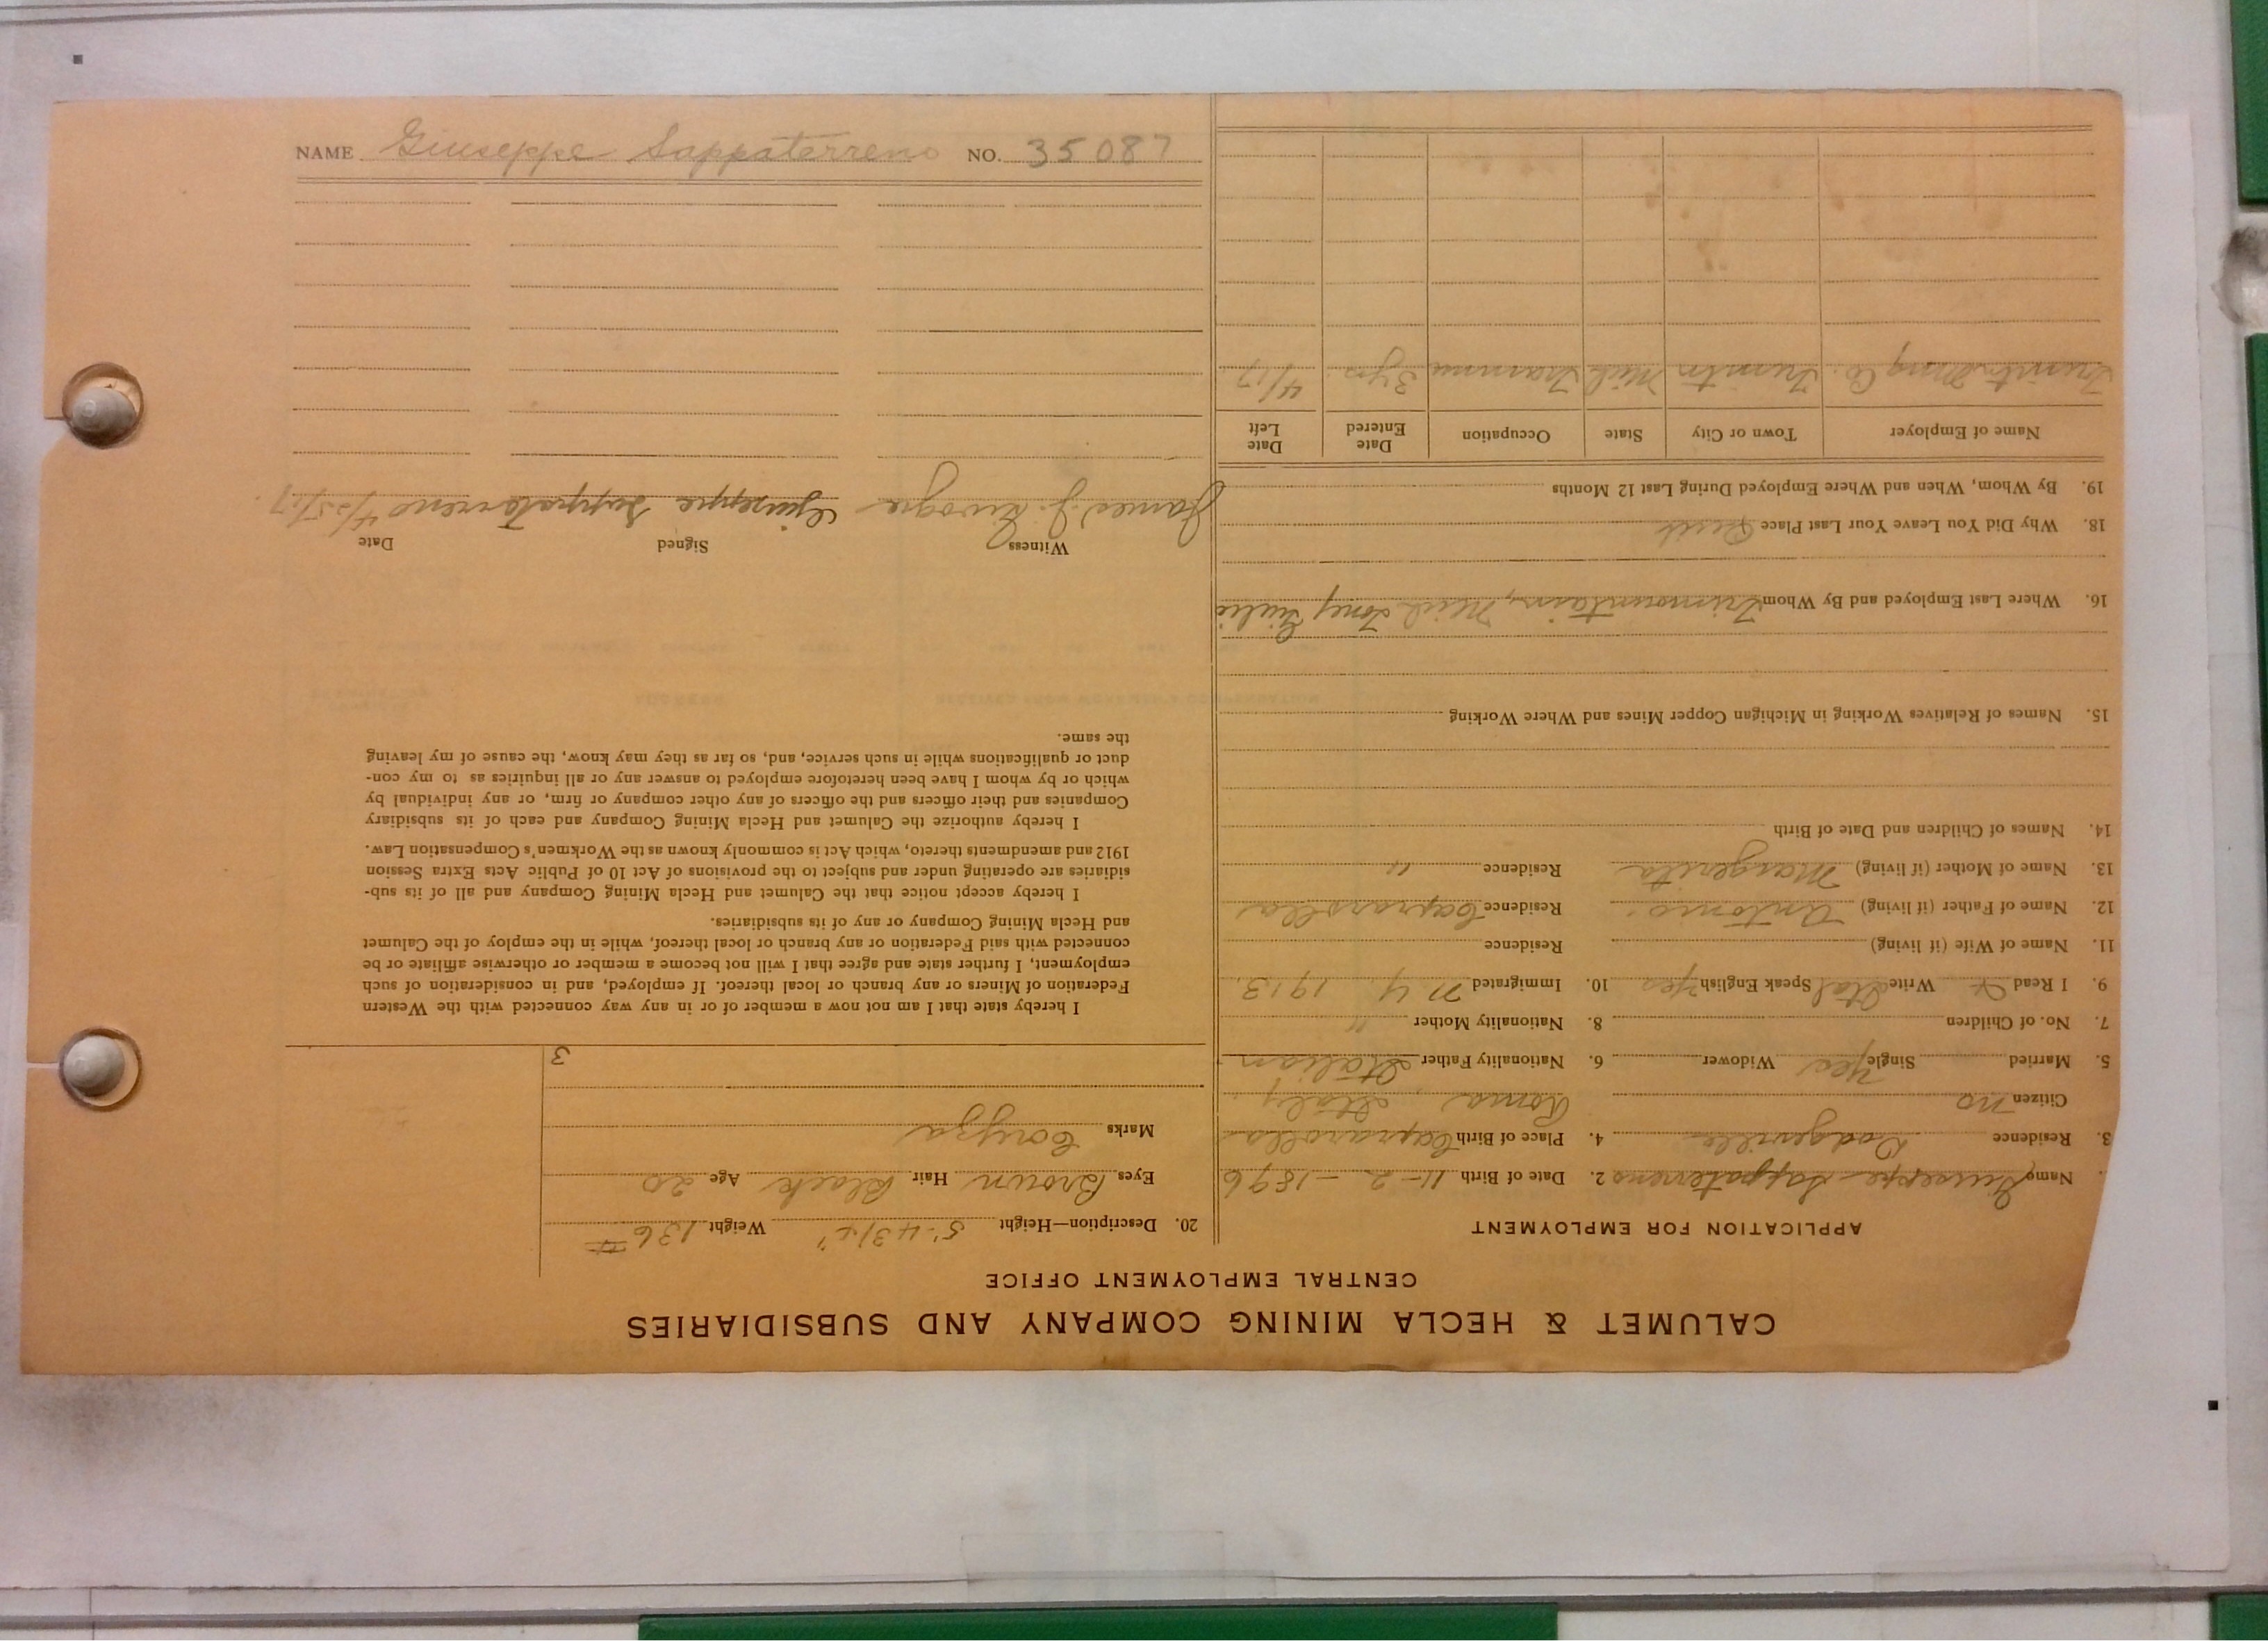 CALUMET & HECLA MINING COMPANY AND SUBSIDIARIES
CENTRAL EMPLOYMENT OFFICE
APPLICATION FOR EMPLOYMENT
Name Giuseppe Sappaterreno 2. Date of Birth 11-2-1896
3. Residence Dodgeville 4. Place of Birth Caprarolla
Citizen no Roma, Italy
5. Married Single yes Widower 6. Nationality Father Italian
7. No. of Children 8. Nationality Mother "
9. I Read & Write Ital Speak English yes 10. Immigrated N.Y. 1913.
11. Name of Wife (if living) Residence
12. Name of Father (if living) Antonio. Residence Caprarolla
13. Name of Mother (if living) Margerita Residence "
14. Names of Children and Date of Birth
15. Names of Relatives Working in Michigan Copper Mines and Where Working
16. Where Last Employed and By Whom Trimountain, Mich Toney
18. Why Did You Leave Your Last Place Quit
19. By Whom, When and Where Employed During Last 12 Months
Name of Employer Town or City State Occupation Date Entered Date Left
Mich 3 yrs 4/17
20. Description—Height 5'-4 3/4" Weight 136 #
Eyes Brown Hair Black Age 20
Marks
3
I hereby state that I am not now a member of or in any way connected with the Western
Federation of Miners or any branch or local thereof. If employed, and in consideration of such
employment, I further state and agree that I will not become a member or otherwise affiliate or be
connected with said Federation or any branch or local thereof, while in the employ of the Calumet
and Hecla Mining Company or any of its subsidiaries.
I hereby accept notice that the Calumet and Hecla Mining Company and all of its sub-
sidiaries are operating under and subject to the provisions of Act 10 of Public Acts Extra Session
1912 and amendments thereto, which Act is commonly known as the Workmen's Compensation Law.
I hereby authorize the Calumet and Hecla Mining Company and each of its subsidiary
Companies and their officers and the officers of any other company or firm, or any individual by
which or by whom I have been heretofore employed to answer any or all inquiries as to my con-
duct or qualifications while in such service, and, so far as they may know, the cause of my leaving
the same.
Witness Signed Date
James J. Giuseppe Sappaterreno 4/25/17.
NAME Giuseppe Sappaterreno NO. 35087